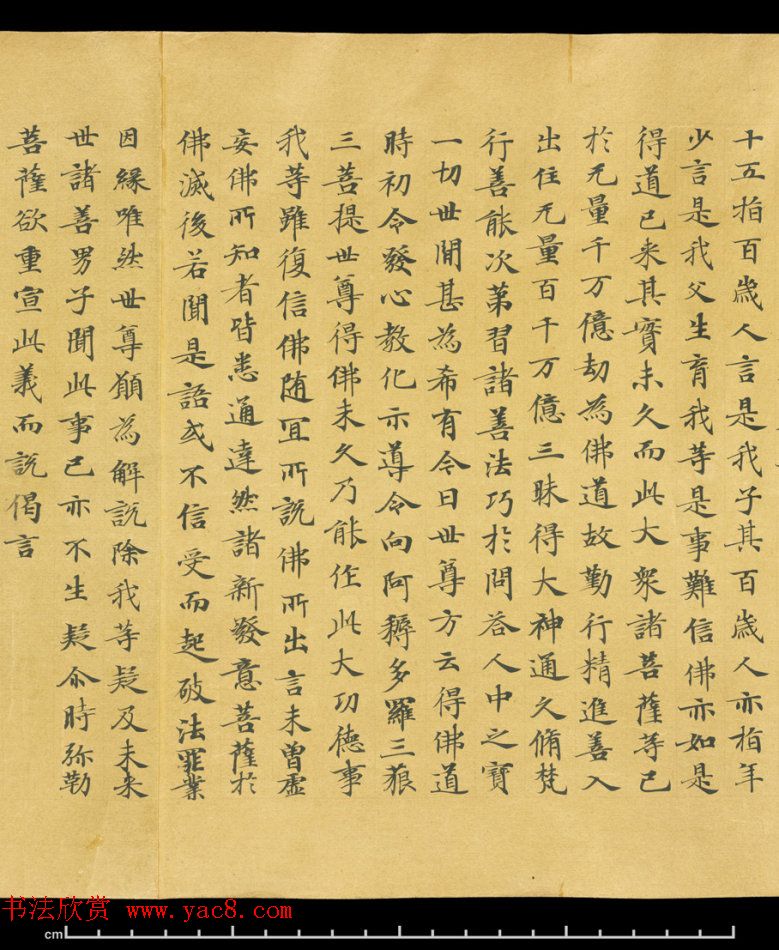 十五指百歲人言是我子其百歲人亦指年
少言是我父生育我等是事難信佛亦如是
得道已来其實未久而此大衆諸菩薩等已
於无量千万億劫為佛道故勤行精進善入
出住无量百千万億三昧得大神通久脩梵
行善能次第習諸善法巧於問荅人中之寶
一切世間甚為希有今日世尊方云得佛道
時初令發心教化示導令向阿耨多羅三藐
三菩提世尊得佛未久乃能作此大功德事
我等雖復信佛随冝所說佛所出言未曽虛
妄佛所知者皆悉通達然諸新發意菩薩於
佛滅後若聞是語或不信受而起破法罪業
因緣唯然世尊願為解說除我等疑及未来
世諸善男子聞此事已亦不生疑尒時弥勒
菩薩欲重宣此義而說偈言
书法欣赏 www.yac8.com
cm